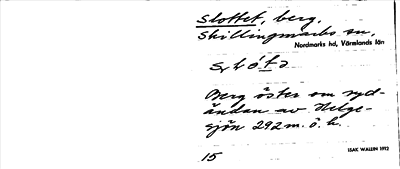 Slottet, berg.
Skillingmarks sn,
Nordmarks hd, Värmlands län
Berg öster om syd-
ändan av Helge-
sjön 292 m. ö. h.
15
ISAK WALLIN 1972